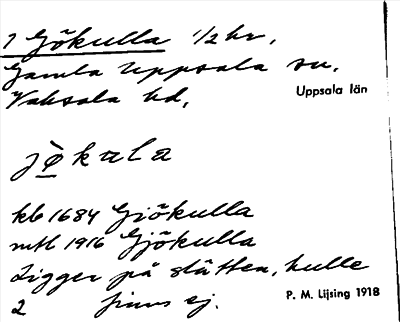 1 Gökulla 1/2 hr,
Gamla Uppsala sn,
Vaksala hd,
Uppsala län
jø̀kala
kb 1684 Giökulla
mtl 1916 Gjökulla
Ligger på slätten, kulle
2 finns ej.
P. M. Lijsing 1918